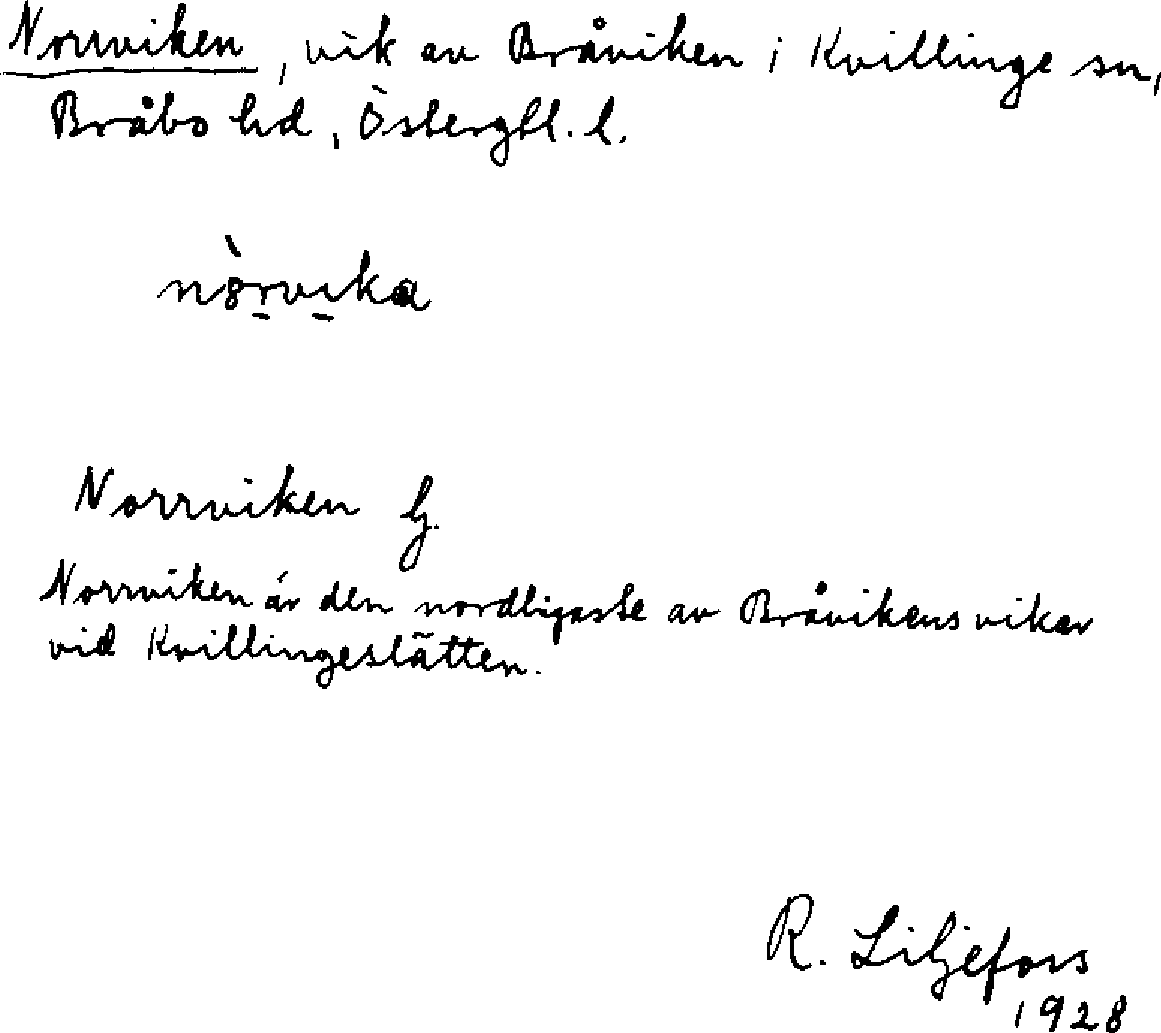 Norrviken, vik av Bråviken i Kvillinge sn,
Bråbo hd, Östergtl. l.
Norrviken
Norrviken är den nordligaste av Bråvikens vikar
vid Kvillingeslätten.
R. Liljefors
1928